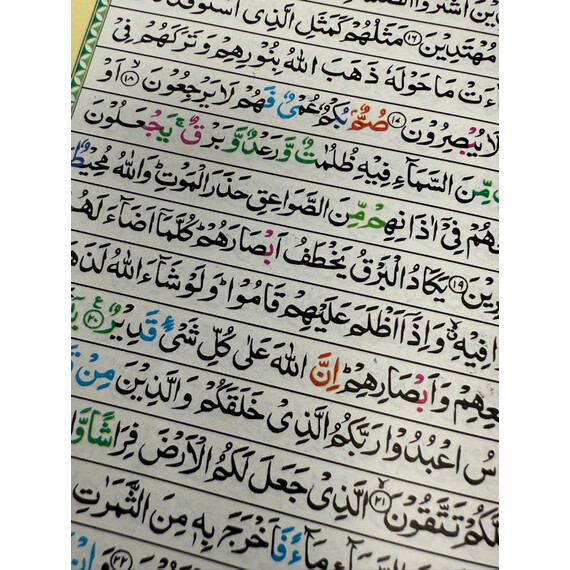 مُهْتَدِيْنَ ۝۱۶ مَثَلُهُمْ كَمَثَلِ الَّذِى اسْتَوْقَدَ
مَا حَوْلَهٗ ذَهَبَ اللّٰهُ بِنُوْرِهِمْ وَتَرَكَهُمْ فِىْ
لَا يُبْصِرُوْنَ ۝۱۷ صُمٌّۢ بُكْمٌ عُمْىٌ فَهُمْ لَا يَرْجِعُوْنَ ۝۱۸ اَوْ
مِّنَ السَّمَآءِ فِيْهِ ظُلُمٰتٌ وَّرَعْدٌ وَّبَرْقٌ ۚ يَجْعَلُوْنَ
فِىْٓ اٰذَانِهِمْ مِّنَ الصَّوَاعِقِ حَذَرَ الْمَوْتِ ؕ وَاللّٰهُ مُحِيْطٌۢ
۝۱۹ يَكَادُ الْبَرْقُ يَخْطَفُ اَبْصَارَهُمْ ؕ كُلَّمَآ اَضَآءَ لَهُمْ
فِيْهِ ۙ وَاِذَآ اَظْلَمَ عَلَيْهِمْ قَامُوْا ؕ وَلَوْ شَآءَ اللّٰهُ
وَاَبْصَارِهِمْ ؕ اِنَّ اللّٰهَ عَلٰى كُلِّ شَىْءٍ قَدِيْرٌ ۝۲۰
اعْبُدُوْا رَبَّكُمُ الَّذِىْ خَلَقَكُمْ وَالَّذِيْنَ مِنْ
تَتَّقُوْنَ ۝۲۱ الَّذِىْ جَعَلَ لَكُمُ الْاَرْضَ فِرَاشًا وَّ
مَآءً فَاَخْرَجَ بِهٖ مِنَ الثَّمَرٰتِ
۝۲۲